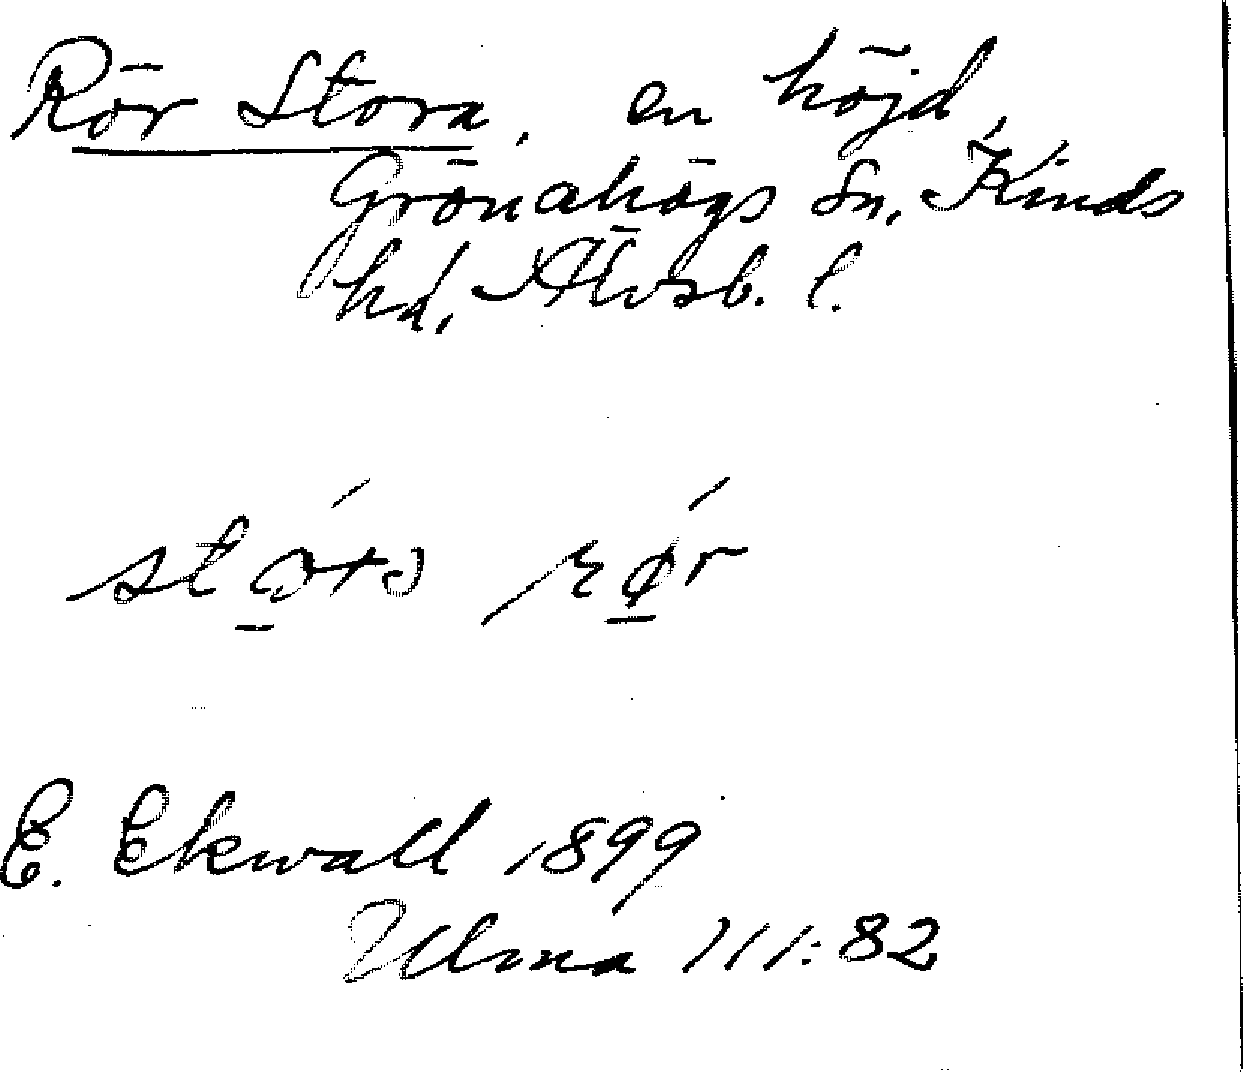 Rör Stora, en höjd,
Grönahögs sn, Kinds
hd, Älvsb. l.
E. Ekwall 1899
Ulma 111:82